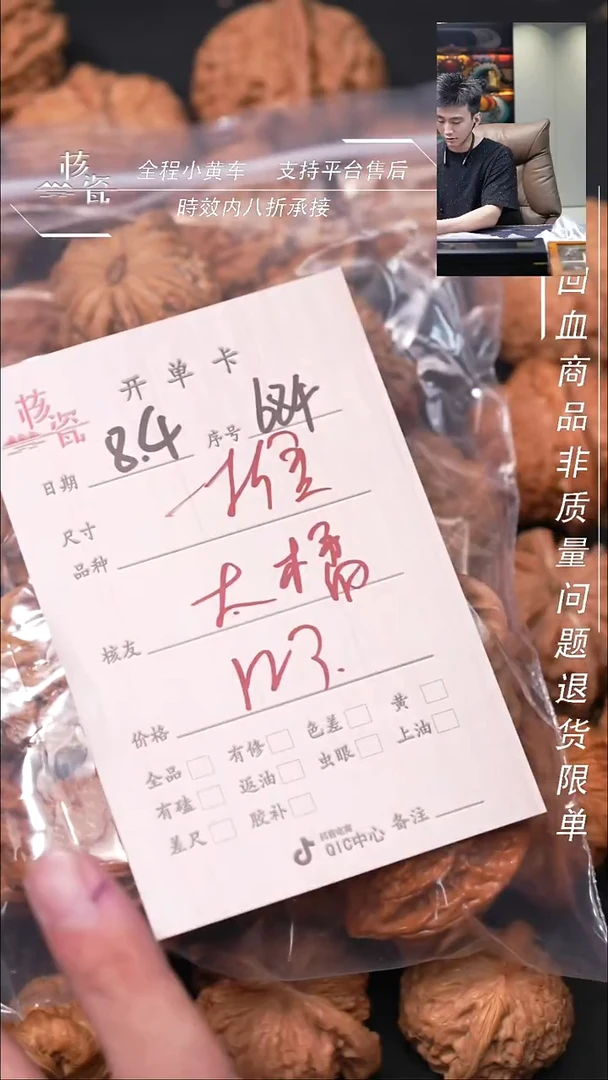 核瓷
全程小黄车 支持平台售后
時效内八折承接
回血商品非质量问题退货限单
开单卡
核瓷
日期 8.4 序号 684
尺寸
品种
太橘
核友
123.
价格
全品 有修 色差 黄
有磕 返油 虫眼 上油
差尺 胶补
抖音电商
QIC中心 备注